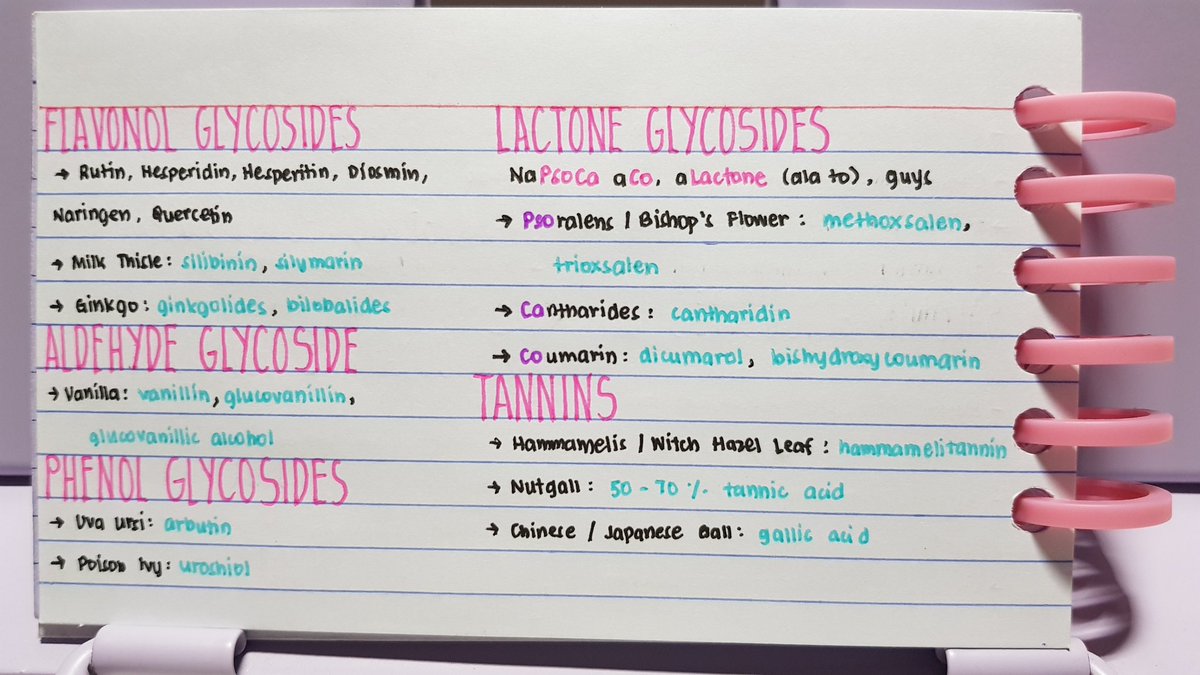 FLAVONOL GLYCOSIDES
→ Rutin, Hesperidin, Hesperitin, Diosmin,
Naringen, Quercetin
→ Milk Thisle: silibinin, silymarin
→ Ginkgo: ginkgolides, bilobalides
ALDEHYDE GLYCOSIDE
→ Vanilla: vanillin, glucovanillin,
glucovanillic alcohol
PHENOL GLYCOSIDES
→ Uva ursi: arbutin
→ Poison Ivy: uroshiol
LACTONE GLYCOSIDES
NaPsoCa aCo, aLactone (ala to), guys
→ Psoralens / Bishop's Flower: methoxsalen,
trioxsalen
→ Cantharides: cantharidin
→ Coumarin: dicumarol, bishydroxycoumarin
TANNINS
→ Hammamelis / Witch Hazel Leaf: hammamelitannin
→ Nutgall: 50-70% tannic acid
→ Chinese / Japanese Gall: gallic acid